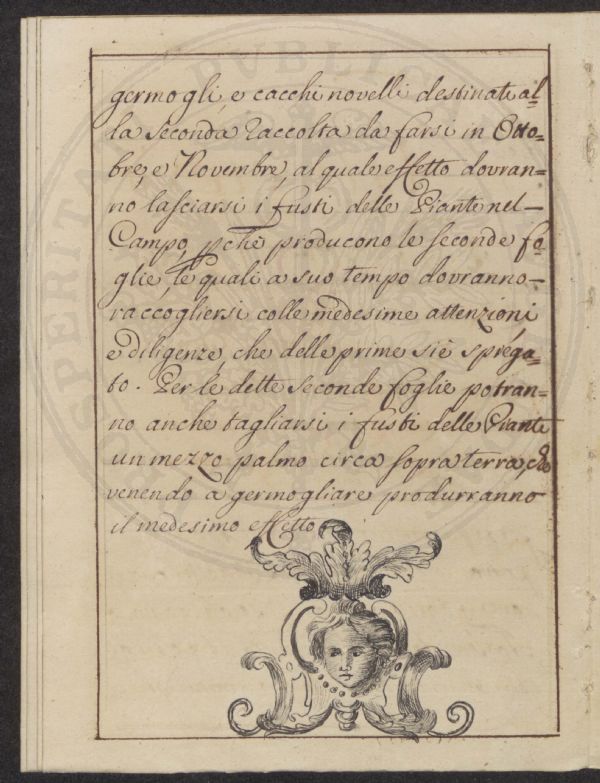 germogli e cacchi novelli destinati al=
la seconda Raccolta da farsi in Otto=
bre, e Novembre, al quale effetto dovran=
no lasciarsi i fusti delle Piante nel–
Campo, pche producono le seconde fo=
glie, le quali a suo tempo dovranno–
raccogliersi colle medesime attenzioni
e diligenze che delle prime si è spiega=
to. Per le dette seconde foglie potran=
no anche tagliarsi i fusti delle Piante
un mezzo palmo circa sopra terra, che
venendo a germogliare produrranno
il medesimo effetto